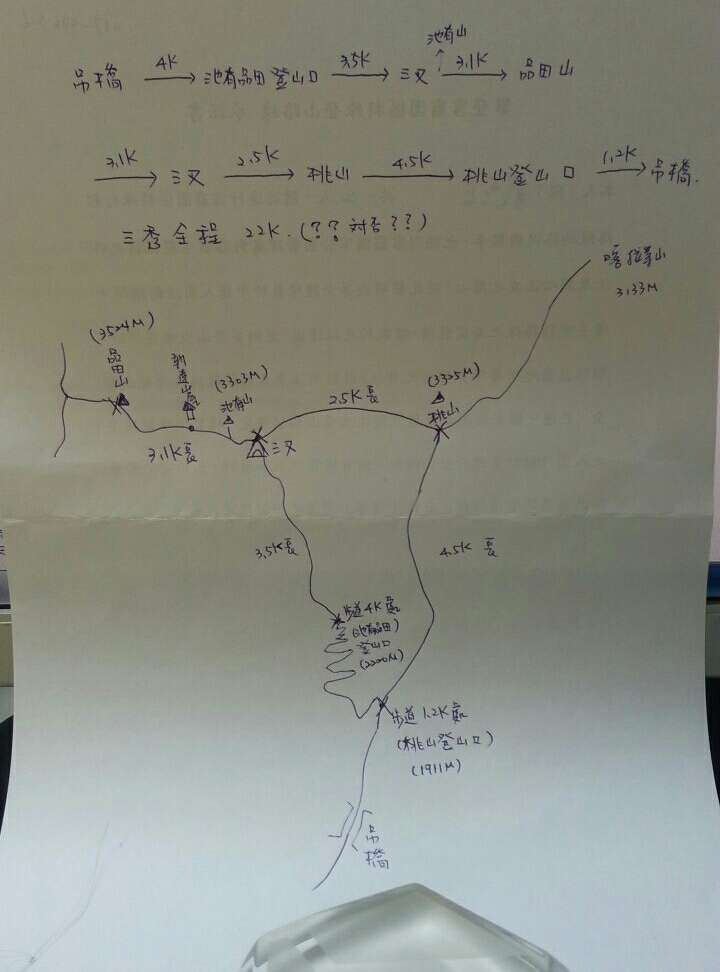 池有山
吊橋 4K 池有品田登山口 3.5K 三叉 ↑ 3.1K 品田山
3.1K 三叉 2.5K 桃山 4.5K 桃山登山口 1.2K 吊橋.
三秀全程 22K.(??對否??)
喀拉業山
3133M
(3524M)
品田山
新達山屋
(3303M)
池有山
(3325M)
桃山
2.5K長
3.1K長
三叉
3.5K長
4.5K長
步道4K處
(池有品田)
登山口
(2200M)
步道1.2K處
(桃山登山口)
(1911M)
吊橋